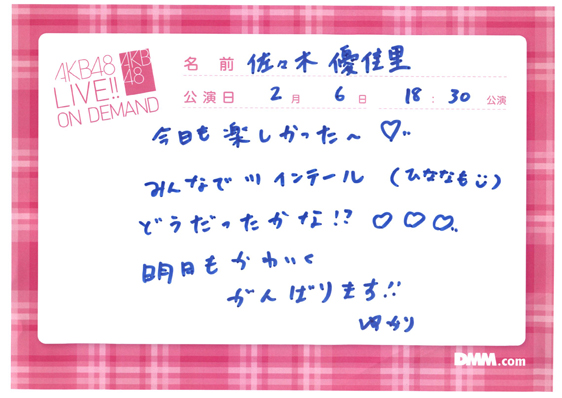 AKB48
LIVE!!
ON DEMAND
AKB
48
名前 佐々木 優佳里
公演日 2月 6日 18:30 公演
今日も楽しかった〜♡
みんなでツインテール (ひななも)
どうだったかな!? ♡♡♡
明日もかわいく
がんばります!!
ゆかり
DMM.com